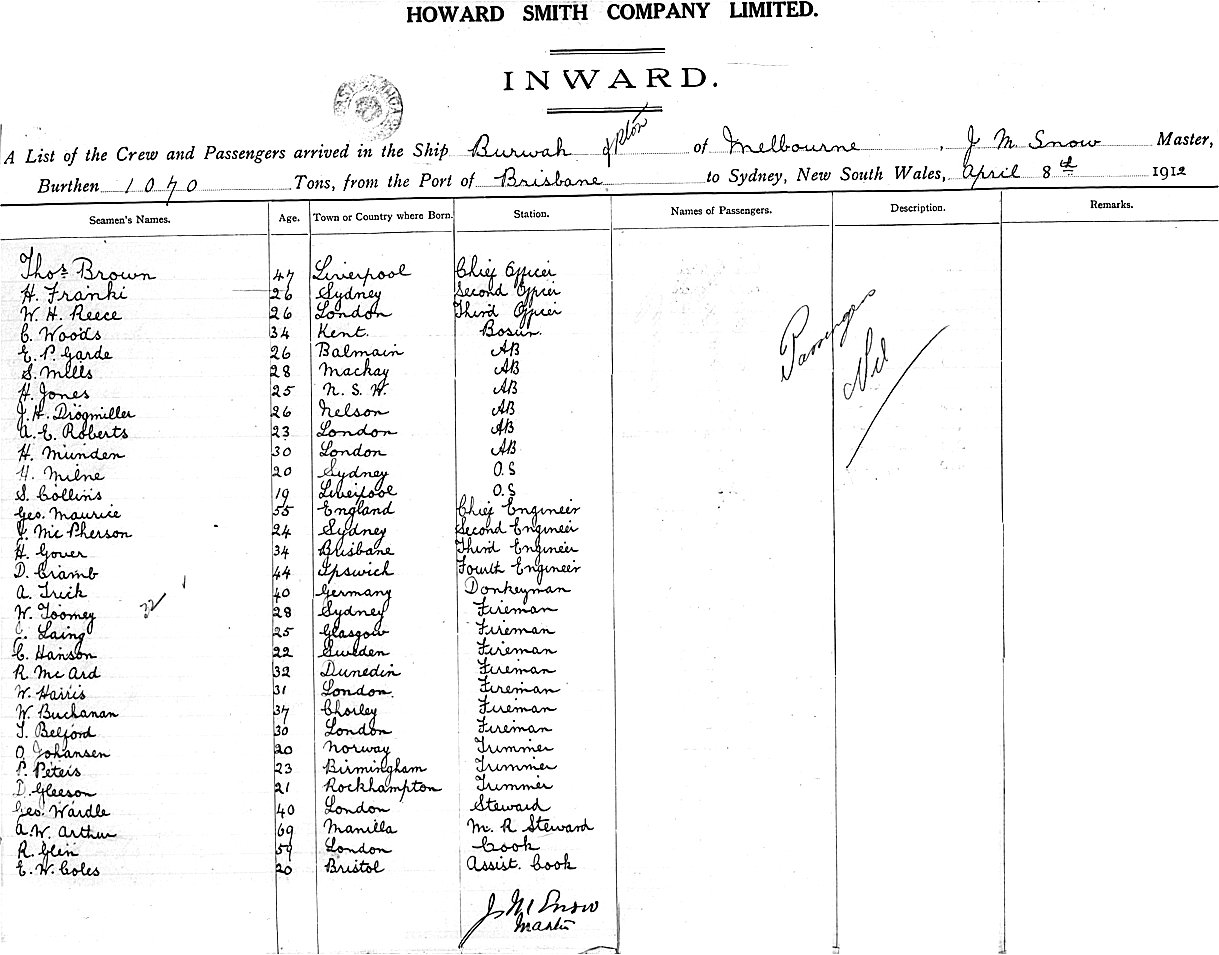 HOWARD SMITH COMPANY LIMITED.
INWARD.
A List of the Crew and Passengers arrived in the Ship Burwah of Melbourne, J M Snow Master,
Burthen 1070 Tons, from the Port of Brisbane to Sydney, New South Wales, April 8th 1912
Seamen's Names. Age. Town or Country where Born. Station. Names of Passengers. Description. Remarks.
Thos Brown 47 Liverpool Chief Officer
H. Franki 26 Sydney Second Officer
W. H. Reece 26 London Third Officer
C. Woods 34 Kent. Bosun
E. P. Garde 26 Balmain AB
S. Mills 28 Mackay AB
H. Jones 25 N. S. W. AB
J. H. Drogmiller 26 Nelson AB
A. E. Roberts 23 London AB
H. Munden 30 London AB
H. Milne 20 Sydney O.S
S. Collins 19 Liverpool O.S
Geo. Maurice 55 England Chief Engineer
McPherson 24 Sydney Second Engineer
H. Gover 34 Brisbane Third Engineer
D. Cramb 44 Ipswich Fourth Engineer
A. Frick 40 Germany Donkeyman
W. Toomey 28 Sydney Fireman
C. Laing 25 Glasgow Fireman
C. Hanson 22 Sweden Fireman
R. McArd 32 Dunedin Fireman
W. Harris 31 London. Fireman
W. Buchanan 37 Chorley Fireman
T. Belford 30 London Fireman
O. Johansen 20 Norway Trimmer
P. Peters 23 Birmingham Trimmer
D. Gleeson 21 Rockhampton Trimmer
Geo. Wardle 40 London Steward
A. W. Arthur 69 Manilla M. R Steward
R. Glen 59 London Cook
E. W. Coles 20 Bristol Assist. Cook
Passengers
Nil
J M Snow
Master